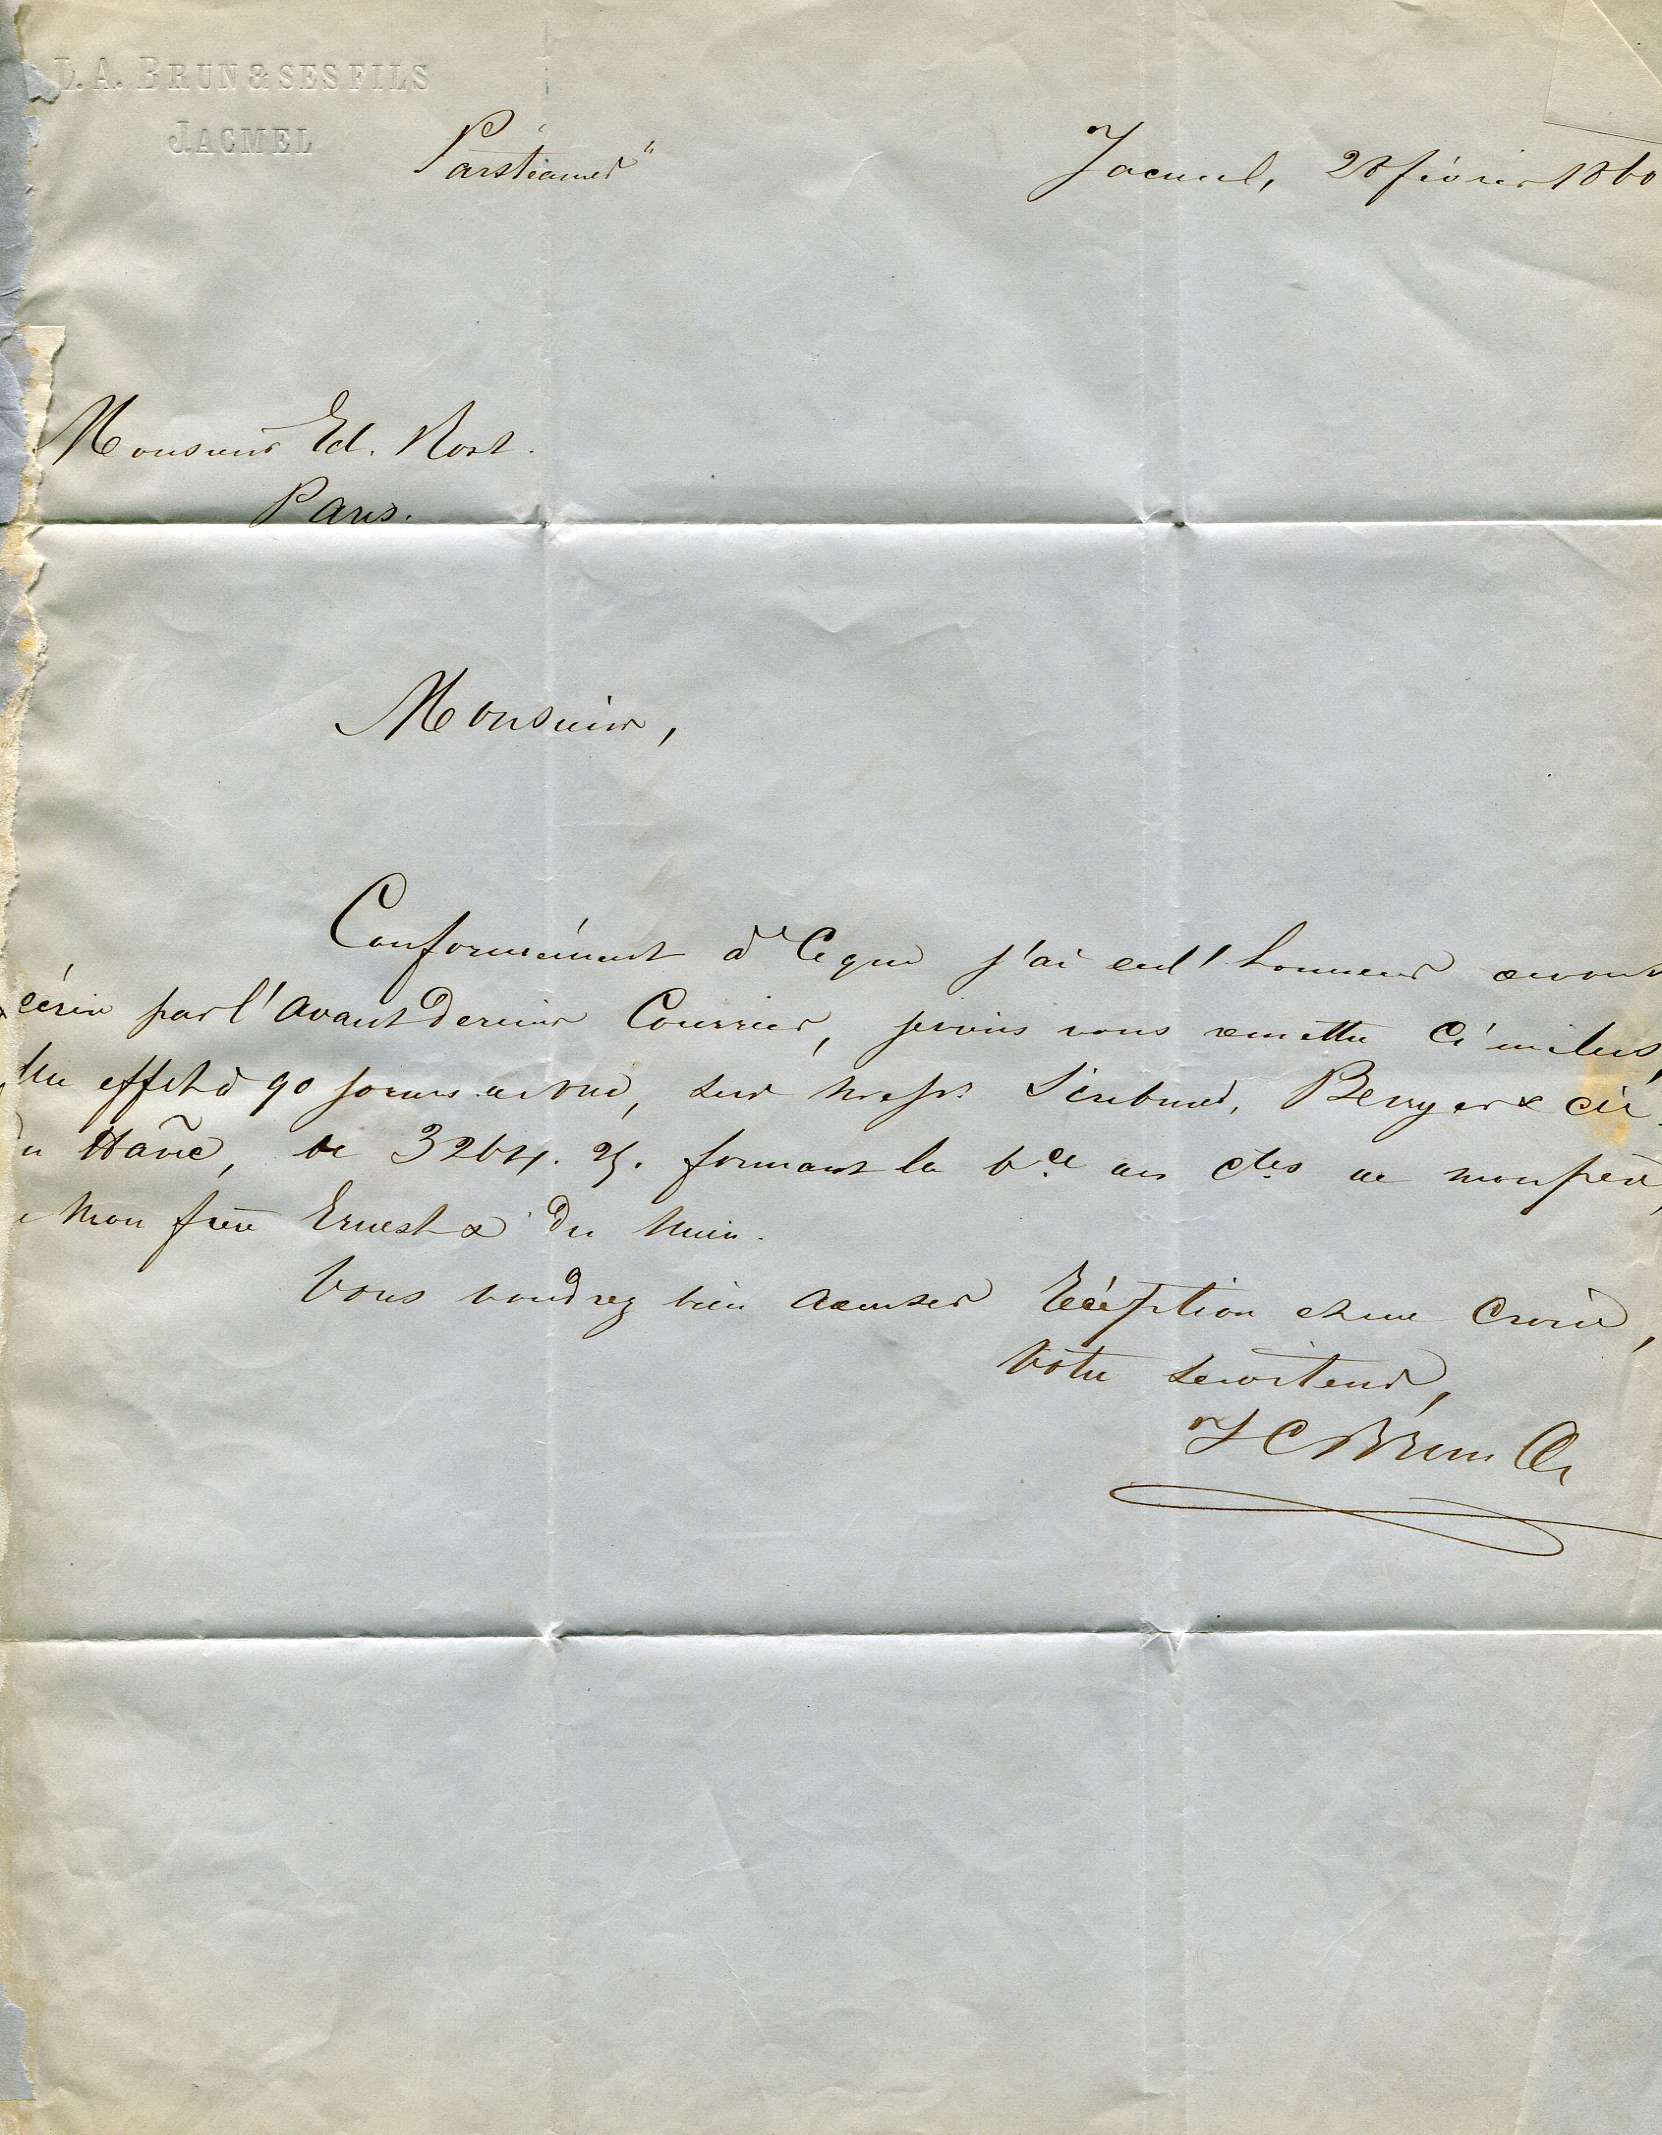 L. A. BRUN & SES FILS
JACMEL
Par steamer"
Jacmel, 28 février 1860
Monsieur Ed. Rost.
Paris.
Monsieur,
Conformément à ce que j'ai eu l'honneur de vous
écrire par l'avant dernier Courrier, je viens vous remettre ci inclus,
Un effet à 90 jours de vue, sur Mess. Berryer & cie
du Havre, de 3264. 25. formant la bce des ctes de mon père,
de mon frère Ernest & du mien.
Vous voudrez bien accuser réception et me croire,
Votre serviteur,
J C Brun